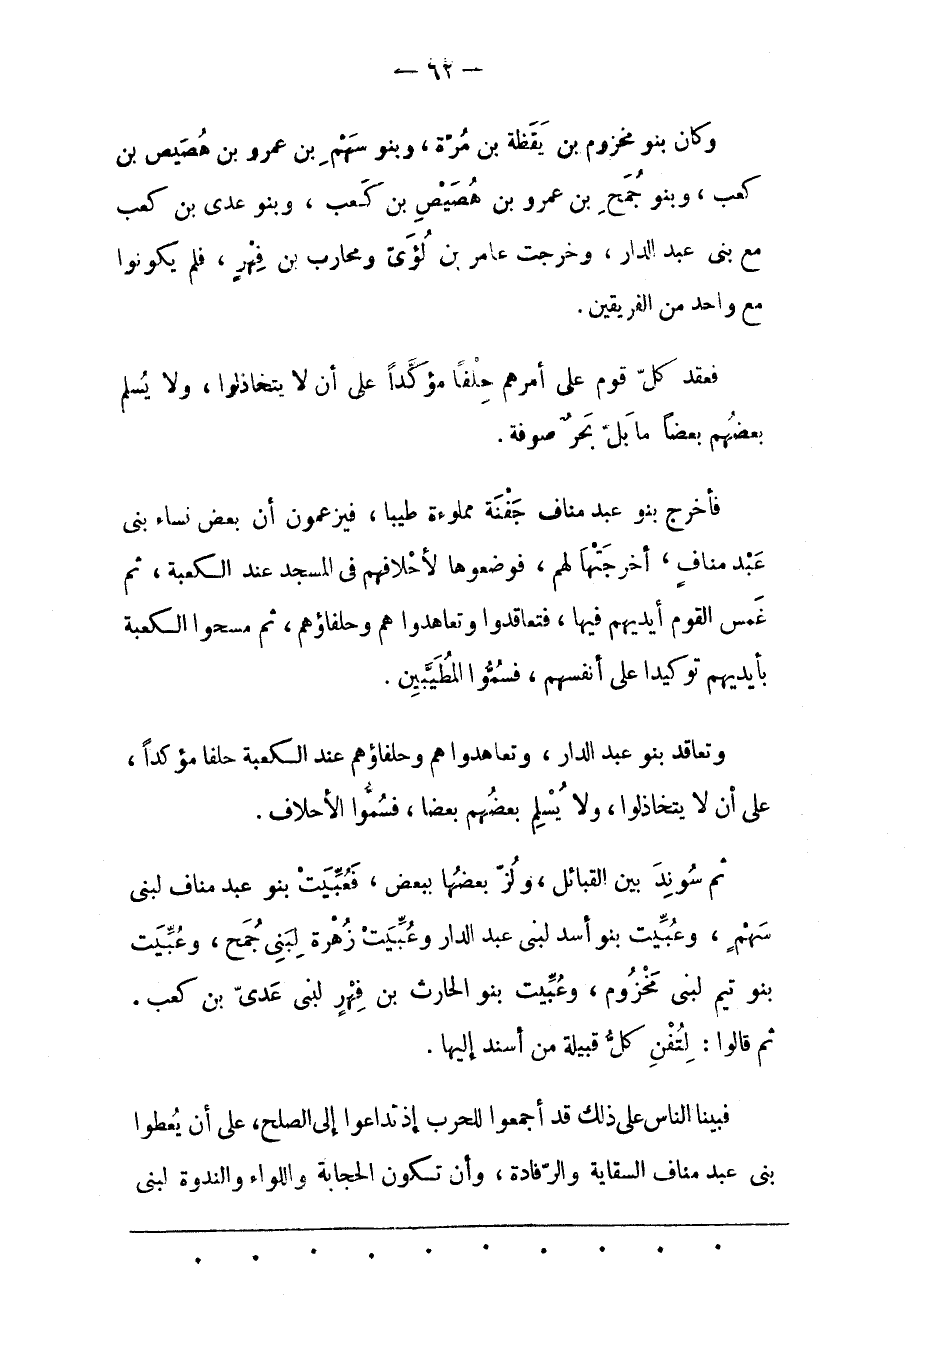 — ٦٢ —
وكان بنو مخزوم بن يَقَظة بن مُرّة ، وبنو سَهْمِ بن عمرو بن هُصَيص بن
كعب ، وبنو جُمَحِ بن عمرو بن هُصَيْصِ بن كَعب ، وبنو عدى بن كعب
مع بنى عبد الدار ، وخرجت عامر بن لُؤَىّ ومحارب بن فِهْرٍ ، فلم يكونوا
مع واحد من الفريقين .
فعقد كلّ قوم على أمرهم حِلْفًا مؤكَّداً على أن لا يتخاذلوا ، ولا يُسلم
بعضُهم بعضاً ما بَلّ بَحرٌ صوفة .
فأخرج بنو عبد مناف جَفْنَة مملوءة طيبا ، فيزعمون أن بعض نساء بنى
عَبْد منافٍ ، أخرجَتْها لهم ، فوضعوها لأحْلافهم فى المسجد عند الكعبة ، ثم
غَمس القوم أيديهم فيها ، فتعاقدوا وتعاهدوا هم وحلفاؤهم ، ثم مسحوا الكعبة
بأيديهم توكيدا على أنفسهم ، فسُمُّوا المُطَيَّبين .
وتعاقد بنو عبد الدار ، وتعاهدوا هم وحلفاؤهم عند الكعبة حلفا مؤكداً ،
على أن لا يتخاذلوا ، ولا يُسْلِم بعضُهم بعضا ، فسُمُّوا الأحلاف .
ثم سُونِدَ بين القبائل ، ولُزّ بعضُها ببعض ، فَعُبِّيَتْ بنو عبد مناف لبنى
سَهْمٍ ، وعُبِّيَت بنو أسد لبنى عبد الدار وعُبِّيَتْ زُهْرة لِبَنِى جُمَح ، وعُبِّيَت
بنو تيم لبنى مَخْزُوم ، وعُبِّيت بنو الحارث بن فِهْرٍ لبنى عَدىّ بن كعب .
ثم قالوا : لِتُفْنِ كلُّ قبيلة من أسند إليها .
فبينا الناس على ذلك قد أجمعوا للحرب إذ تداعوا إلى الصلح، على أن يُعطوا
بنى عبد مناف السقاية والرّفادة ، وأن تكون الحجابة واللواء والندوة لبنى
. . . . . . . . . .